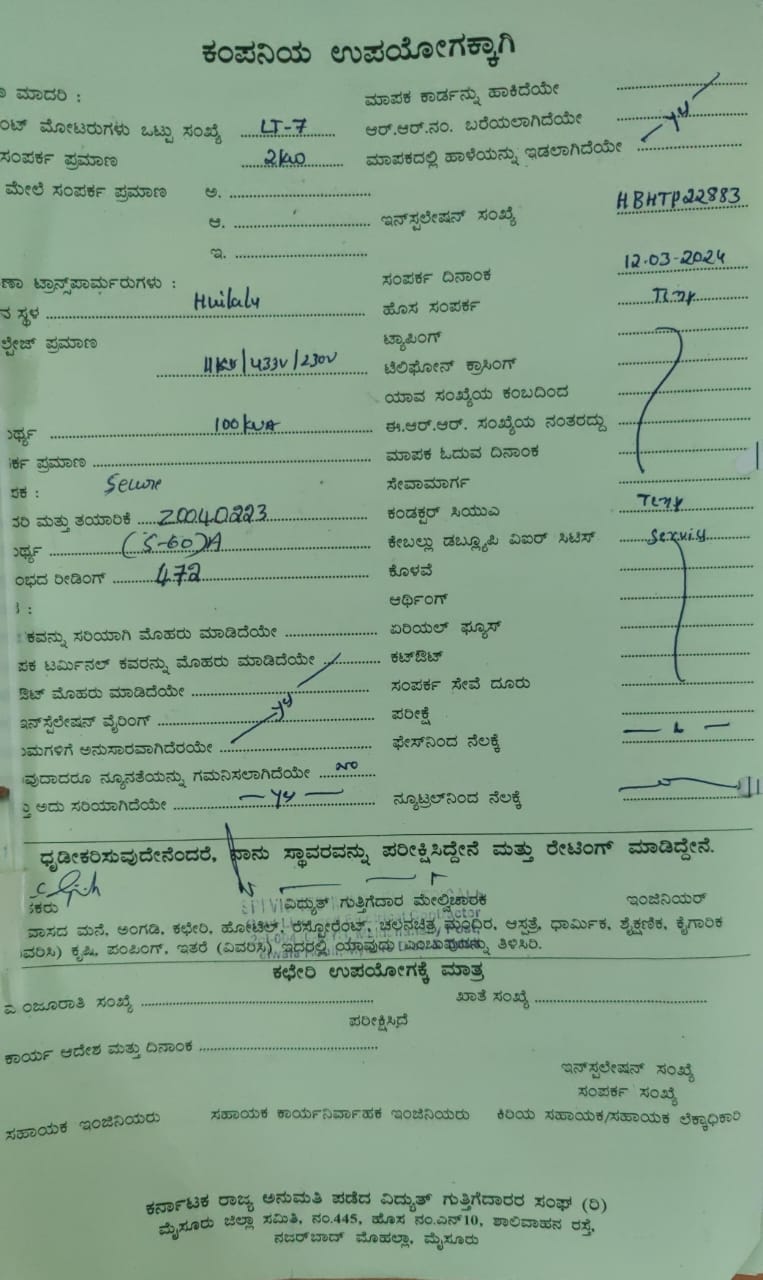 ಕಂಪನಿಯ ಉಪಯೋಗಕ್ಕಾಗಿ
ಮಾದರಿ :
ಮಾಪಕ ಕಾರ್ಡನ್ನು ಹಾಕಿದೆಯೇ
ಂಟ್ ಮೋಟರುಗಳು ಒಟ್ಟು ಸಂಖ್ಯೆ LT-7
ಆರ್.ಆರ್.ನಂ. ಬರೆಯಲಾಗಿದೆಯೇ
ಸಂಪರ್ಕ ಪ್ರಮಾಣ 2KW
ಮಾಪಕದಲ್ಲಿ ಹಾಳೆಯನ್ನು ಇಡಲಾಗಿದೆಯೇ
ಮೇಲೆ ಸಂಪರ್ಕ ಪ್ರಮಾಣ ಅ.
ಆ.
ಇನ್‌ಸ್ಪಲೇಷನ್ ಸಂಖ್ಯೆ HBHTP22883
ಇ.
ಣಾ ಟ್ರಾನ್ಸ್‌ಪಾರ್ಮರುಗಳು :
ಸಂಪರ್ಕ ದಿನಾಂಕ 12.03-2024
ನ ಸ್ಥಳ Huilalu
ಹೊಸ ಸಂಪರ್ಕ
ಲ್ಟೇಜ್ ಪ್ರಮಾಣ
ಟ್ಯಾಪಿಂಗ್
11KV/433V/230V
ಟೆಲಿಫೋನ್ ಕ್ರಾಸಿಂಗ್
ಯಾವ ಸಂಖ್ಯೆಯ ಕಂಬದಿಂದ
ರ್ಥ್ಯ 100KVA
ಈ.ಆರ್.ಆರ್. ಸಂಖ್ಯೆಯ ನಂತರದ್ದು
ರ್ಕ ಪ್ರಮಾಣ
ಮಾಪಕ ಓದುವ ದಿನಾಂಕ
ಪಕ : Secure
ಸೇವಾಮಾರ್ಗ
ದರಿ ಮತ್ತು ತಯಾರಿಕೆ Z0040223
ಕಂಡಕ್ಟರ್ ಸಿಯುಎ
ರ್ಥ್ಯ (5-60)A
ಕೇಬಲ್ಲು ಡಬ್ಲ್ಯೂಪಿ ವಿಐರ್ ಸಿಟಿಸ್
ಂಭದ ರೀಡಿಂಗ್ 472
ಕೊಳವೆ
ಆರ್ಥಿಂಗ್
ಕವನ್ನು ಸರಿಯಾಗಿ ಮೊಹರು ಮಾಡಿದೆಯೇ
ಏರಿಯಲ್ ಫ್ಯೂಸ್
ಪಕ ಟರ್ಮಿನಲ್ ಕವರನ್ನು ಮೊಹರು ಮಾಡಿದೆಯೇ
ಕಟ್‌ಔಟ್
ಔಟ್ ಮೊಹರು ಮಾಡಿದೆಯೇ
ಸಂಪರ್ಕ ಸೇವೆ ದೂರು
ಇನ್‌ಸ್ಪೆಲೇಷನ್ ವೈರಿಂಗ್
ಪರೀಕ್ಷೆ
ಮಗಳಿಗೆ ಅನುಸಾರವಾಗಿದೆರಯೇ
ಫೇಸ್‌ನಿಂದ ನೆಲಕ್ಕೆ
ವುದಾದರೂ ನ್ಯೂನತೆಯನ್ನು ಗಮನಿಸಲಾಗಿದೆಯೇ NO
ಅದು ಸರಿಯಾಗಿದೆಯೇ
ನ್ಯೂಟ್ರಲ್‌ನಿಂದ ನೆಲಕ್ಕೆ
ಧೃಡೀಕರಿಸುವುದೇನೆಂದರೆ, ನಾನು ಸ್ಥಾವರವನ್ನು ಪರೀಕ್ಷಿಸಿದ್ದೇನೆ ಮತ್ತು ರೇಟಿಂಗ್ ಮಾಡಿದ್ದೇನೆ.
ಕರು ವಿದ್ಯುತ್ ಗುತ್ತಿಗೆದಾರ ಮೇಲ್ವಿಚಾರಕ ಇಂಜಿನಿಯರ್
ವಾಸದ ಮನೆ, ಅಂಗಡಿ, ಕಛೇರಿ, ಹೋಟೆಲ್, ರೆಸ್ಟೋರೆಂಟ್, ಚಲನಚಿತ್ರ ಮಂದಿರ, ಆಸ್ಪತ್ರೆ, ಧಾರ್ಮಿಕ, ಶೈಕ್ಷಣಿಕ, ಕೈಗಾರಿಕ
ವರಿಸಿ) ಕೃಷಿ, ಪಂಪಿಂಗ್, ಇತರೆ (ವಿವರಿಸಿ) ಇದರಲ್ಲಿ ಯಾವುದು ಎಂಬುವುದನ್ನು ತಿಳಿಸಿರಿ.
ಕಛೇರಿ ಉಪಯೋಗಕ್ಕೆ ಮಾತ್ರ
ಂಜೂರಾತಿ ಸಂಖ್ಯೆ ಖಾತೆ ಸಂಖ್ಯೆ
ಪರೀಕ್ಷಿಸಿದೆ
ಕಾರ್ಯ ಆದೇಶ ಮತ್ತು ದಿನಾಂಕ
ಇನ್‌ಸ್ಪಲೇಷನ್ ಸಂಖ್ಯೆ
ಸಂಪರ್ಕ ಸಂಖ್ಯೆ
ಸಹಾಯಕ ಇಂಜಿನಿಯರು ಸಹಾಯಕ ಕಾರ್ಯನಿರ್ವಾಹಕ ಇಂಜಿನಿಯರು ಕಿರಿಯ ಸಹಾಯಕ/ಸಹಾಯಕ ಲೆಕ್ಕಾಧಿಕಾರಿ
ಕರ್ನಾಟಕ ರಾಜ್ಯ ಅನುಮತಿ ಪಡೆದ ವಿದ್ಯುತ್ ಗುತ್ತಿಗೆದಾರರ ಸಂಘ (ರಿ)
ಮೈಸೂರು ಜಿಲ್ಲಾ ಸಮಿತಿ, ನಂ.445, ಹೊಸ ನಂ.ಎನ್10, ಶಾಲಿವಾಹನ ರಸ್ತೆ,
ನಜರ್‌ಬಾದ್ ಮೊಹಲ್ಲಾ, ಮೈಸೂರು